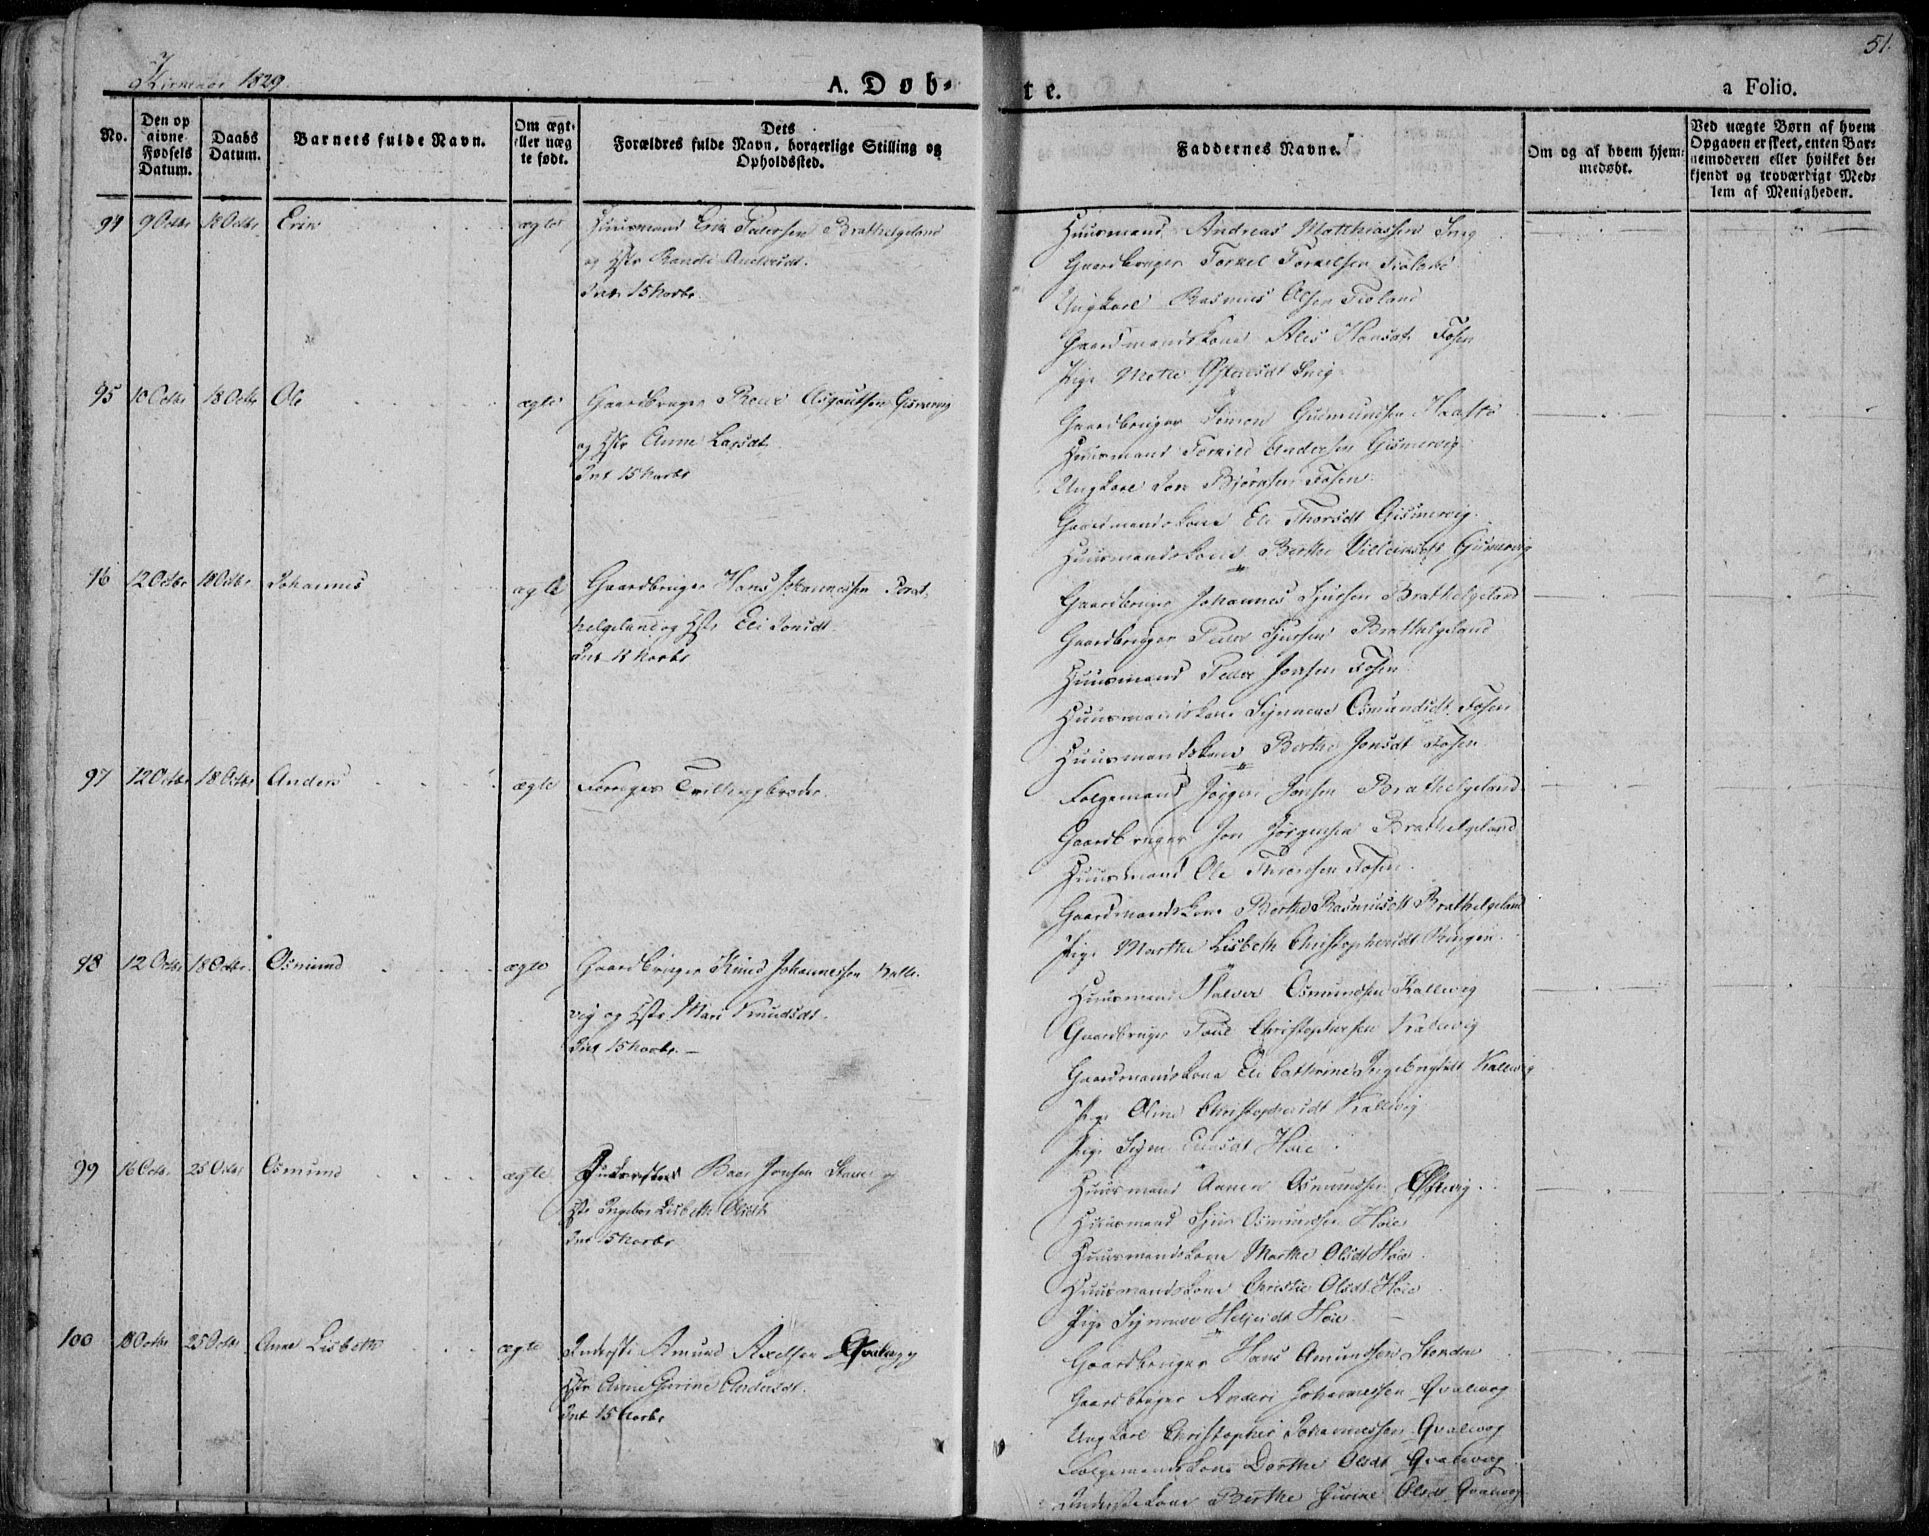 1829
51.
A. Døb-
te.
a Folio.
No.
Den op
givne
Fødsels
Datum.
Daabs
Datum.
Barnets fulde Navn.
Om ægt-
eller uæg
te født.
Dets
Forældres fulde Navn, borgerlige Stilling og
Opholdssted.
Faddernes Navne.
Om og af hvem hjem-
medøbt.
Ved uægte Børn af hvem
Opgaven er skeet, enten Bar-
nemoderen eller hvilket be-
kjendt og troværdigt Med-
lem af Menigheden.
94 9 Octbr 18 Octbr Erik ægte Huusmand Erik Pedersen Brathelgeland
og Hstr Randi Andersdt.
Int. 15 Novbr.
Huusmand Andreas Matthiassen
Gaardbruger Torkel Torkelsen
Ungkarl Rasmus Olsen
Gaardmandskone Hansdt Fosen
Pige Mette
95 10 Octbr 18 Octbr Ole ægte Gaardbruger Asgoutsen Gismervig
og Hstr Anne Larsdt.
Int 15 Novbr
Gaardbruger Simon Gudmundsen
Huusmand Torkild Andersen Gismervig
Ungkarl Jon Bjørnsen Fosen.
Gaardmandskone Eli Thorsdt Gismervig.
Huusmandskone Berthe Gismervig
96 12 Octbr 18 Octbr Johannes ægte Gaardbruger Hans Johannessen Brat-
helgeland og Hstr Eli Jonsdt.
Int 15 Novbr
Gaardbruger Johannes Sjursen Brathelgeland
Gaardbruger Peder Sjursen Brathelgeland
Huusmand Peder Jonsen Fosen
Huusmandskone Synneve Osmundsdt. Fosen
Huusmandskone Berthe Jonsdt Fosen
97 12 Octbr 18 Octbr Anders ægte Forriges Tvillingbroder.
Folgemand Jørgen Jonsen Brathelgeland
Gaardbruger Jon Jørgensen Brathelgeland
Huusmand Ole Fosen.
Gaardmandskone Berthe Rasmusdt Brathelgeland
Pige Marthe Lisbeth Christophersdt
98 12 Octbr 18 Octbr. Osmund ægte Gaardbruger Knud Johannessen Kalle-
vig og Hstr. Mari Knudsdt.
Int 15 Novbr. –
Huusmand Halvor Osmundsen Kallevig
Gaardbruger Poul Christophersen Kallevig
Gaardmandskone Eli Cathrine Ingebrigtsdt Kallevig
Pige Oline Christophersdt Kallevig
Pige Høie
99 16 Octbr. 25 Octbr Osmund ægte Inderste Baar Jonsen og
Hstr Ingebor Lisbeth Olsdt
Int 15 Novbr
Huusmand Aanen Osmundsen
Huusmand Sjur Osmundsen Høie
Huusmandskone Marthe Olsdt Høie
Huusmandskone Christie Olsdt Høie
Pige Synneve Høie.
100 18 Octbr 25 Octbr Anne Lisbeth ægte Inderste Amund Axelsen Qvalevog og
Hstr Anne Gurine Andersdt.
Int 15 Novbr
Gaardbruger Hans Amundsen
Gaardbruger Anders Johannessen Qvalevog
Ungkarl Christopher Johannessen Qvalevog
Folgemandskone Dorthe Olsdt Qvalevog
Inderstekone Berthe Gurine Olsdt Qvalevog